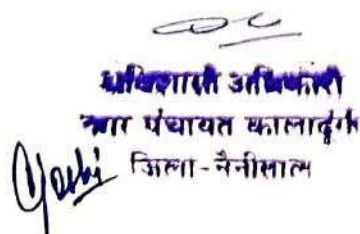 अधिशासी अधिकारी
नगर पंचायत कालाढूंगी
जिला-नैनीताल
Joshi